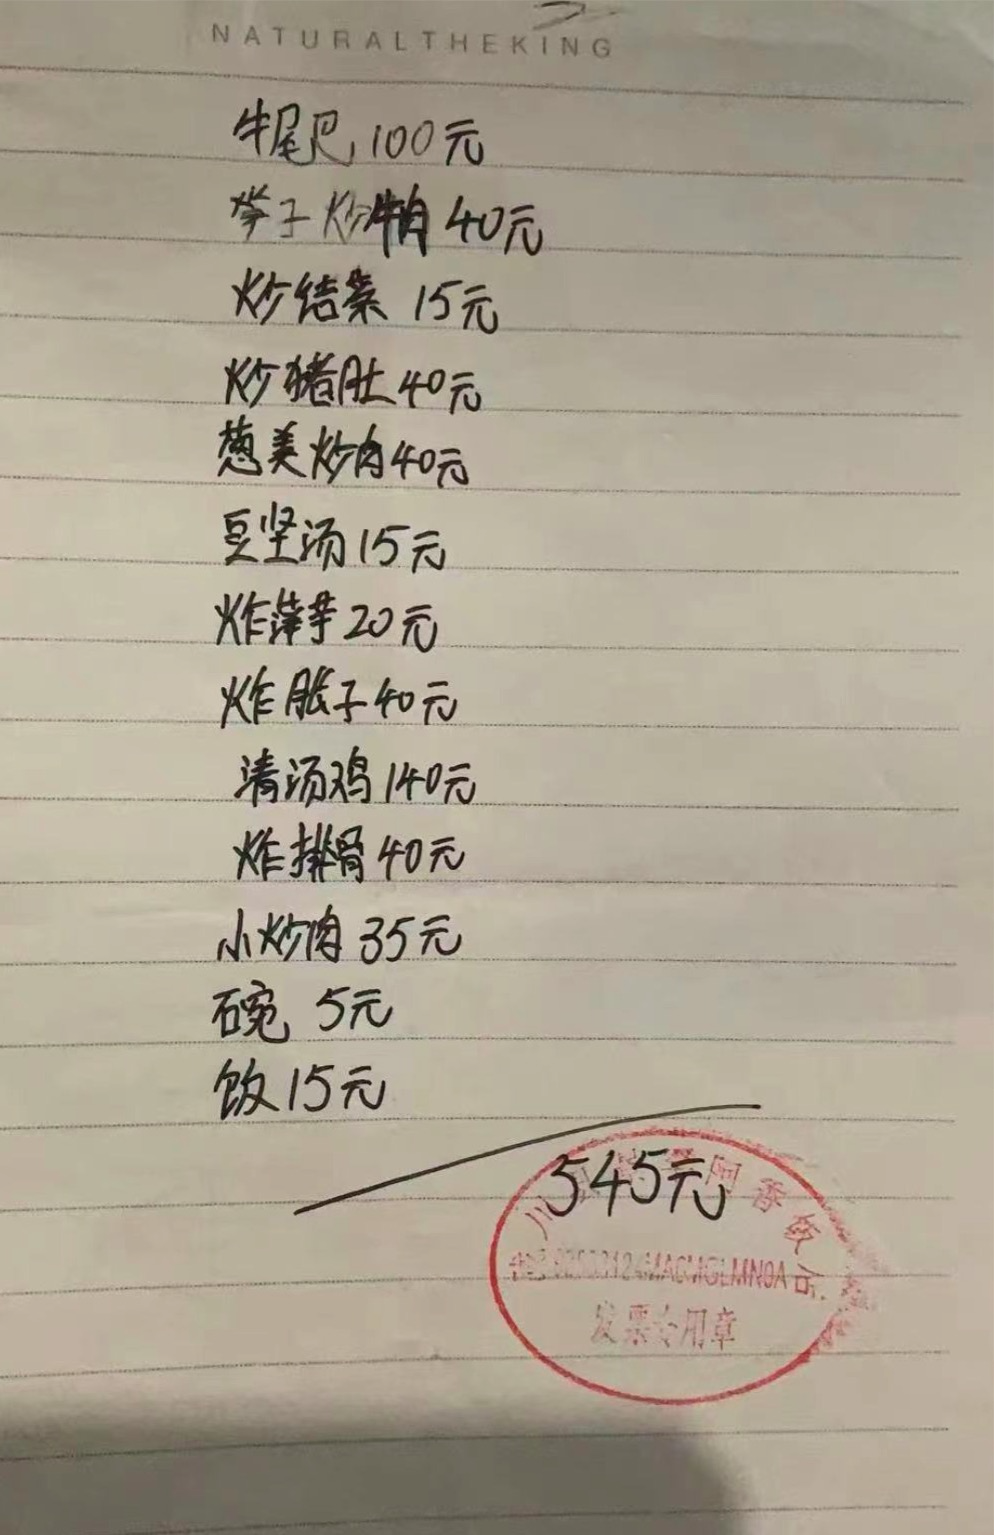 NATURALTHEKING
牛尾巴 100元
笋子炒牛肉 40元
炒结菜 15元
炒猪肚 40元
葱美炒肉 40元
豆坚汤 15元
炸萍芋 20元
炸胀子 40元
清汤鸡 140元
炸排骨 40元
小炒肉 35元
碗 5元
饭 15元
545元
发票专用章